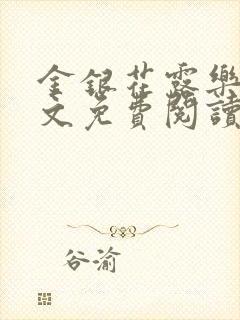 金銀花露樂
文免費閱讀
谷渝